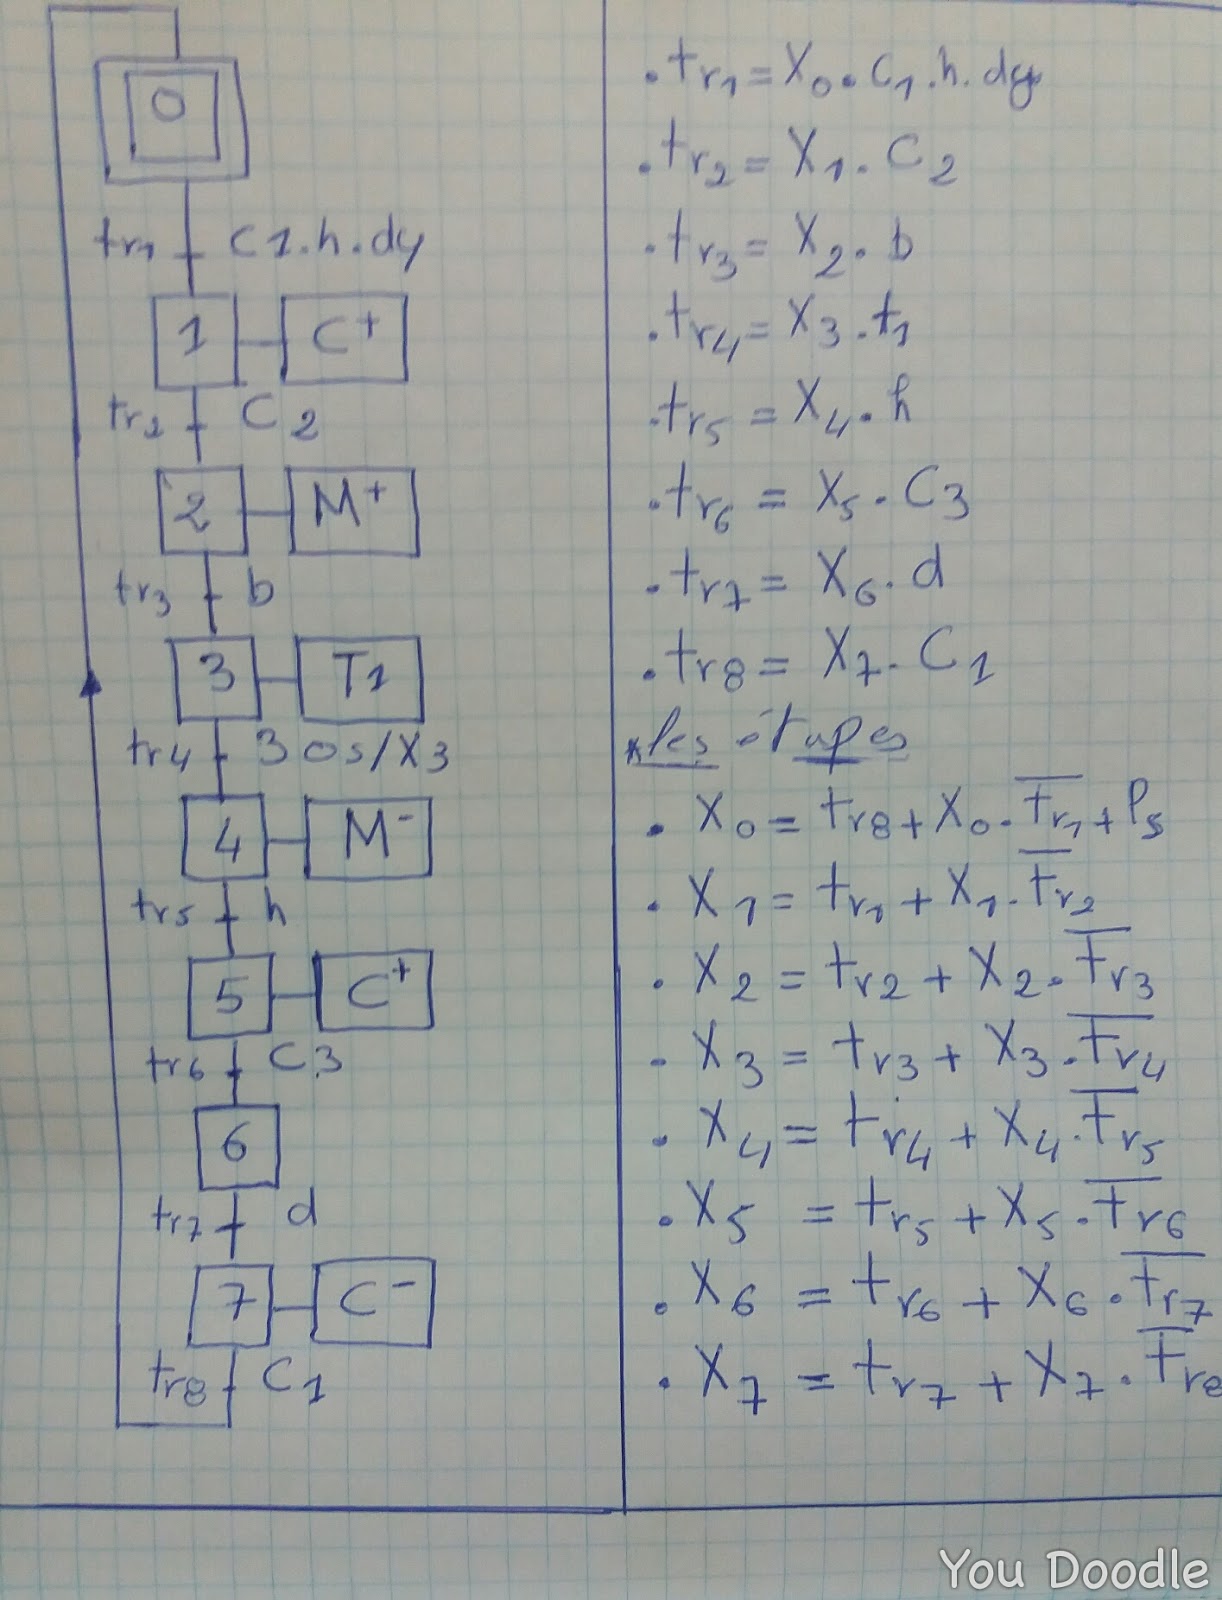 0
tr1 C1.h.dy
1 C+
tr2 C2
2 M+
tr3 b
3 T1
tr4 30s/X3
4 M-
tr5 h
5 C+
tr6 C3
6
tr7 d
7 C-
tr8 C1
. tr1 = X0 . C1 . h . dy
. tr2 = X1 . C2
. tr3 = X2 . b
. tr4 = X3 . t1
. tr5 = X4 . h
. tr6 = X5 . C3
. tr7 = X6 . d
. tr8 = X7 . C1
* les étapes
. X0 = tr8 + X0 . t̅r̅1̅ + Ps
. X1 = tr1 + X1 . t̅r̅2̅
. X2 = tr2 + X2 . t̅r̅3̅
. X3 = tr3 + X3 . t̅r̅4̅
. X4 = tr4 + X4 . t̅r̅5̅
. X5 = tr5 + X5 . t̅r̅6̅
. X6 = tr6 + X6 . t̅r̅7̅
. X7 = tr7 + X7 . t̅r̅8̅
You Doodle